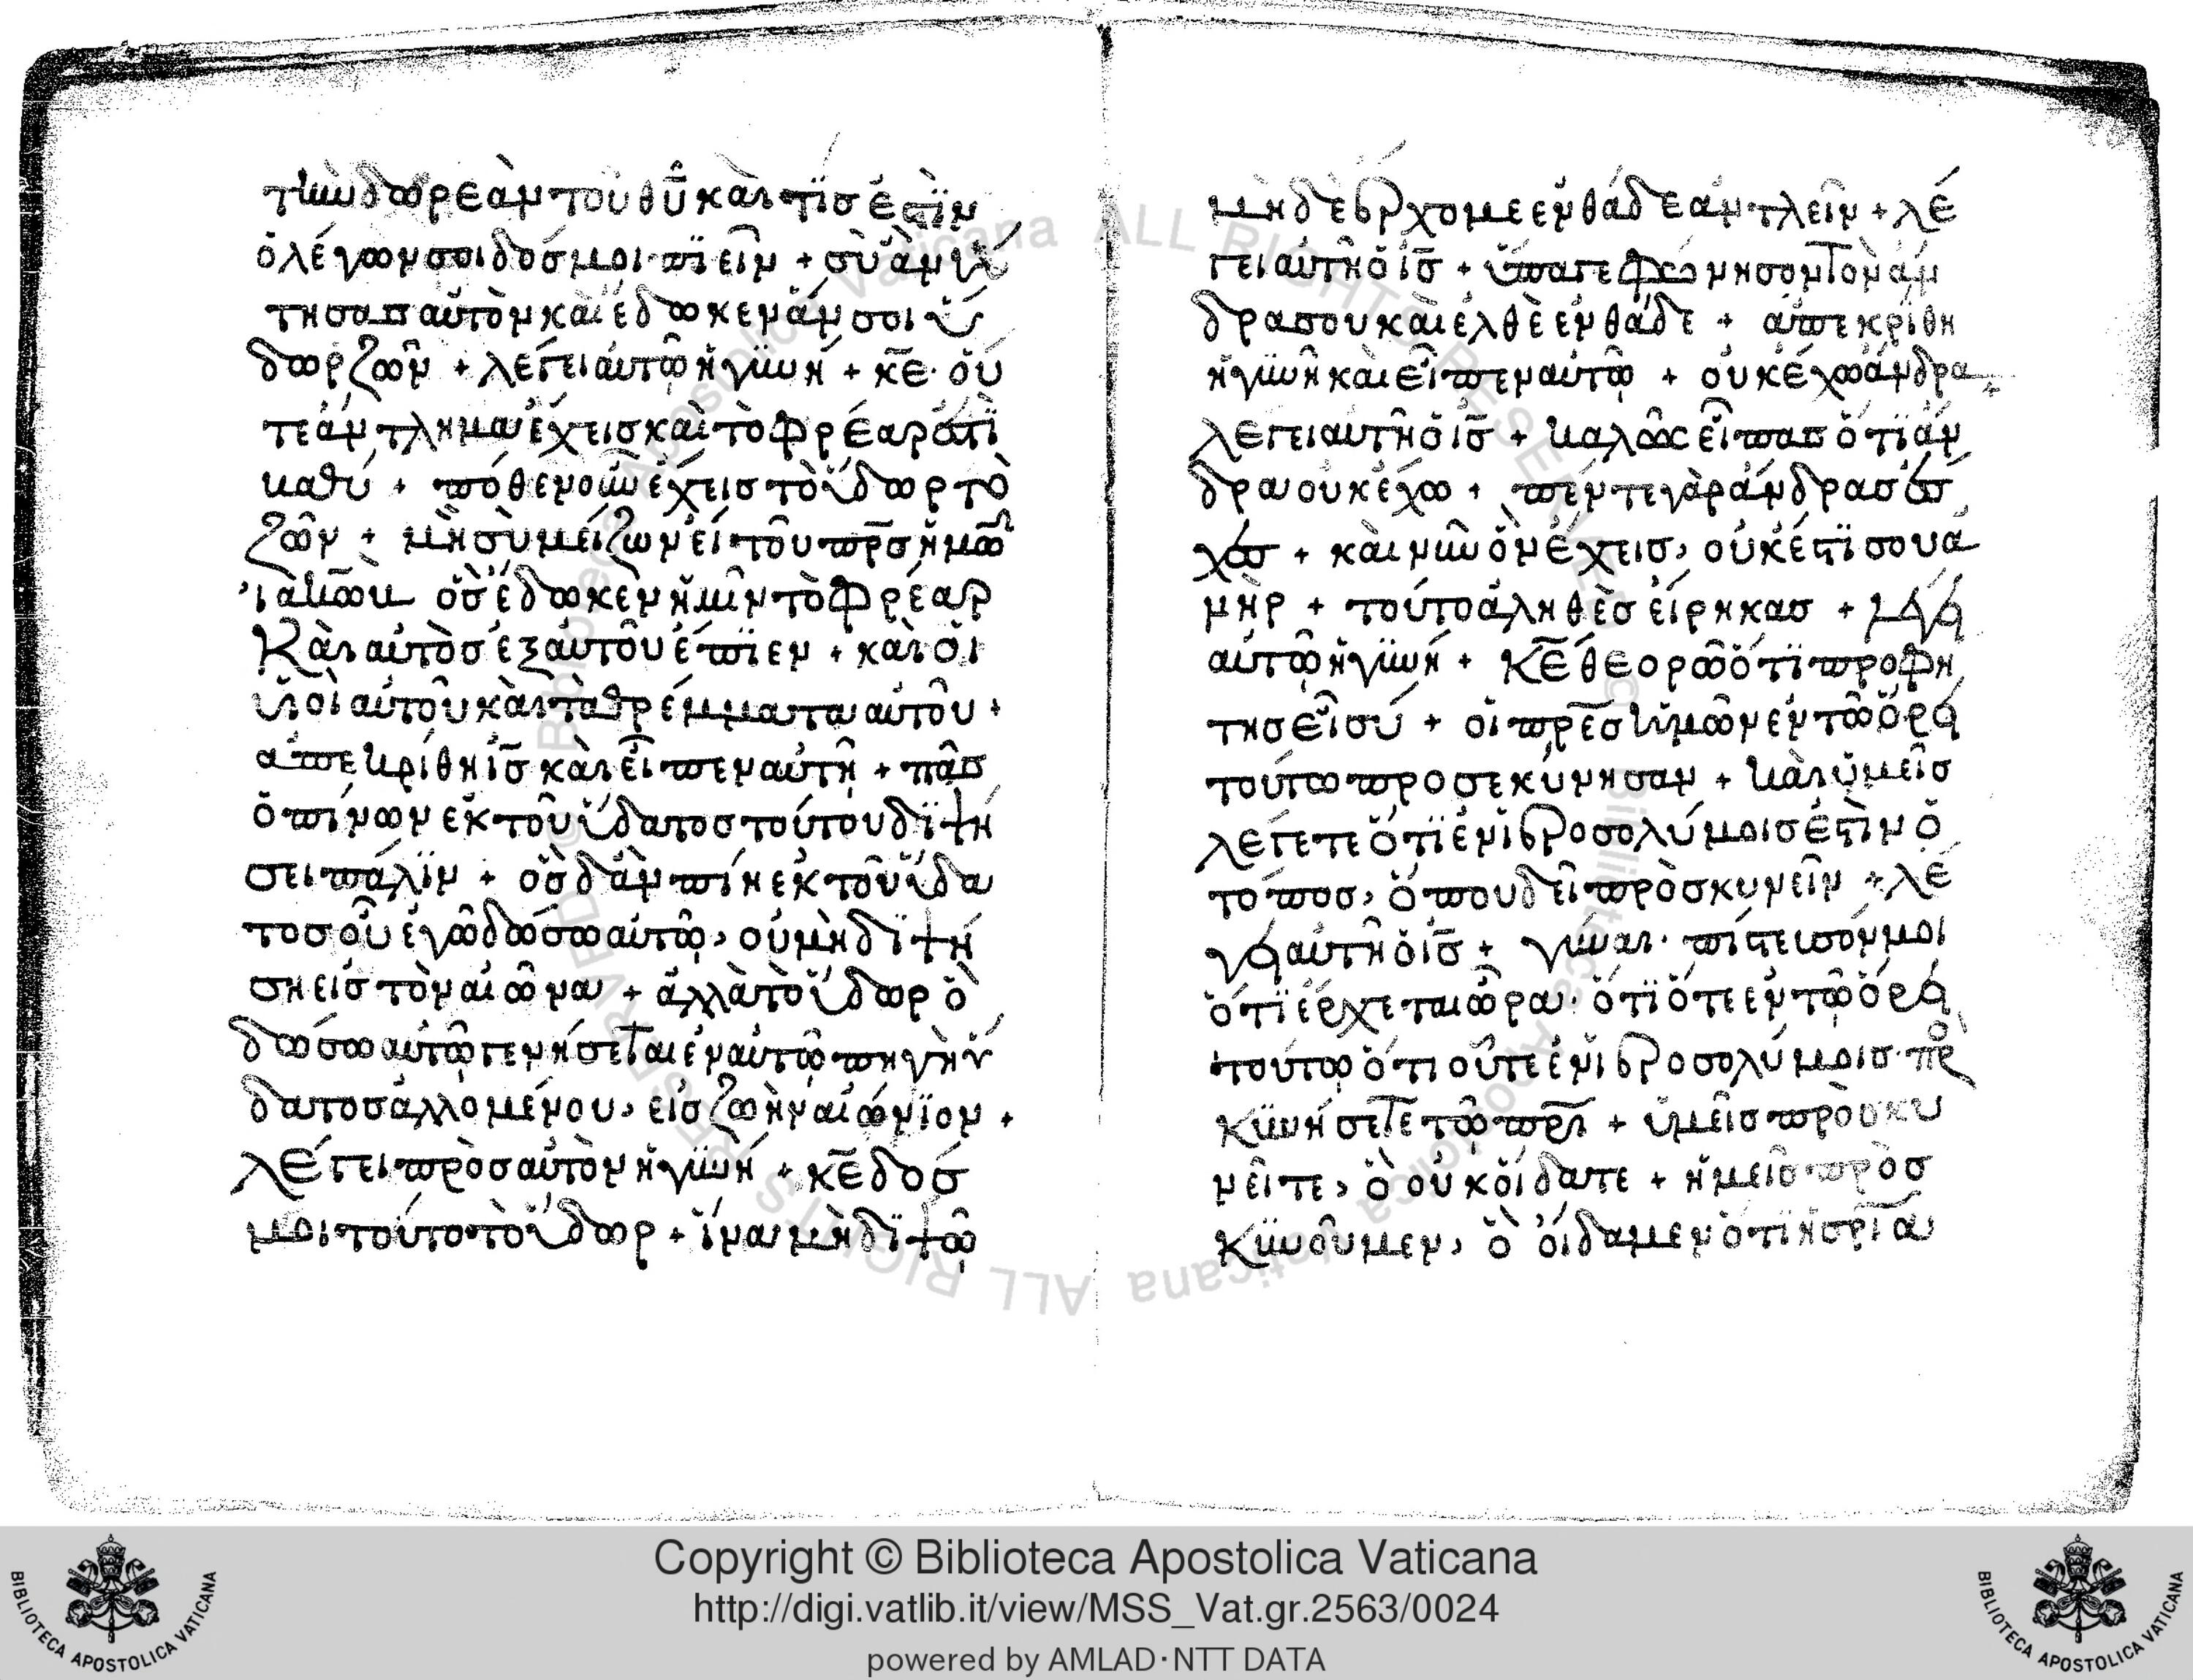 τὴν δωρεὰν τοῦ θῦ καὶ τίς ἐστιν
ὁ λέγων σοι δός μοι πιεῖν + σὺ ἂν ἤ
τησας αὐτὸν καὶ ἔδωκεν ἄν σοι ὕ
δωρ ζῶν + λέγει αὐτῶ ἡ γυνή + κε οὔ
τε ἄντλημα ἔχεις καὶ τὸ φρέαρ ἐστὶ
βαθύ + πόθεν οὖν ἔχεις τὸ ὕδωρ τὸ
ζῶν + μὴ σὺ μείζων εἶ τοῦ πρς ἡμῶν
ἰακὼβ ὃς ἔδωκεν ἡμῖν τὸ φρέαρ
Καὶ αὐτὸς ἐξ αὐτοῦ ἔπιεν + καὶ οἱ
υἱοὶ αὐτοῦ καὶ τὰ θρέμματα αὐτοῦ +
ἀπεκρίθη ις καὶ εἶπεν αὐτῆ + πᾶς
ὁ πίνων ἐκ τοῦ ὕδατος τούτου διψή
σει πάλιν + ὃς δ ἂν πίη ἐκ τοῦ ὕδα
τος οὗ ἐγὼ δώσω αὐτῶ, οὐ μὴ διψή
ση εἰς τὸν αἰῶνα + ἀλλὰ τὸ ὕδωρ ὃ
δώσω αὐτῶ γενήσεται ἐν αὐτῶ πηγὴ ὕ
δατος ἁλλομένου, εἰς ζωὴν αἰώνιον +
λέγει πρὸς αὐτὸν ἡ γυνή + κε δός
μοι τοῦτο τὸ ὕδωρ + ἵνα μὴ διψῶ
μηδὲ ἔρχομε ἐνθάδε ἀντλεῖν + λέ
γει αὐτῆ ὁ ις + ὕπαγε φώνησον τὸν ἄν
δρα σου καὶ ἐλθὲ ἐνθάδε + ἀπεκρίθη
ἡ γυνὴ καὶ εἶπεν αὐτῶ + οὐκ ἔχω ἄνδρα +
λέγει αὐτῆ ὁ ις + καλῶς εἶπας ὅτι ἄν
δρα οὐκ ἔχω + πέντε γὰρ ἄνδρας ἔσ
χες + καὶ νῦν ὃν ἔχεις, οὐκ ἔστι σου ἀ
νήρ + τοῦτο ἀληθὲς εἴρηκας + λέγει
αὐτῶ ἡ γυνή + Κε θεορῶ ὅτι προφή
της εἶ σύ + οἱ πρες ἡμῶν ἐν τῶ ὄρει
τούτω προσεκύνησαν + καὶ ὑμεῖς
λέγετε ὅτι ἐν ἱεροσολύμοις ἐστὶν ὁ
τόπος, ὅπου δεῖ πρὸσκυνεῖν + λέ
γει αὐτῆ ὁ ις + γύναι πίστευσόν μοι
ὅτι ἔρχεται ὥρα ὅτι ὅτε ἐν τῶ ὄρει
τούτω ὅτι οὔτε ἐν ἱεροσολύμοις προ
Κυνήσετε τῶ πρι + ὑμεῖς προσκυ
νεῖτε, ὃ οὐκ οἴδατε + ἡμεῖς πρὸσ
Κυνοῦμεν, ὃ οἴδαμεν ὅτι ἡ σρία